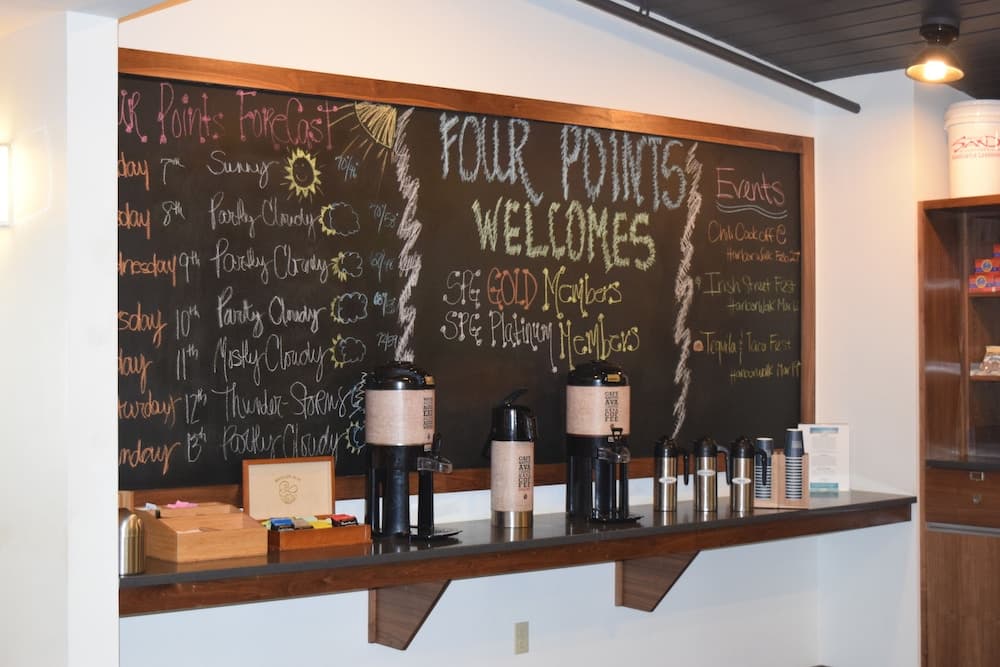 UR Points Forecast
day 7th Sunny 70/46
day 8th Partly Cloudy 70/53
dnesday 9th Partly Cloudy
sday 10th Partly Cloudy
day 11th Mostly Cloudy
turday 12th Thunder-Storms
nday 13th Partly Cloudy
FOUR POINTS
WELCOMES
SPG GOLD Members
SPG Platinum Members
Events
Chili Cook off @
HarborWalk Feb 27
Irish Street Fest
HarborWalk Mar
Tequila & Taco Fest
HarborWalk Mar 19th
CAFE
AVA
COFFEE
CAFE
AVA
COFFEE
CAFE
AVA
COFFEE